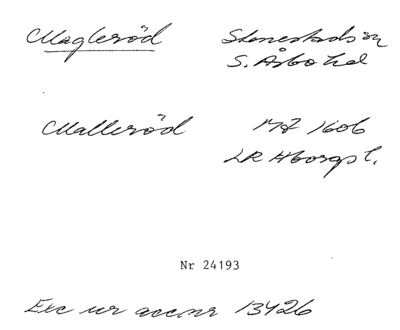 Magleröd Stenestads sn
S. Åsbo hd
Malleröd MF 1606
LR Hborgs l.
Nr 24193
Exc ur acc nr 13426